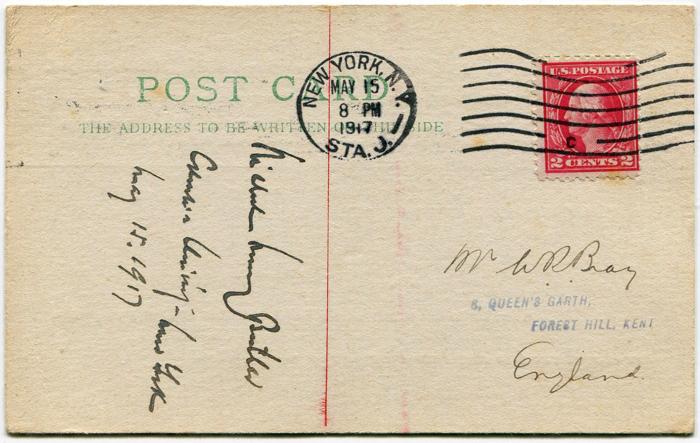 POST CARD
THE ADDRESS TO BE WRITTEN ON THIS SIDE
NEW YORK, N.Y.
MAY 15
8 PM
1917
STA. J.
U.S. POSTAGE
2 CENTS 2
Nicholas Murray Butler
Columbia University - New York
May 15. 1917
Mr W R Bray
8, QUEEN'S GARTH,
FOREST HILL, KENT
England.